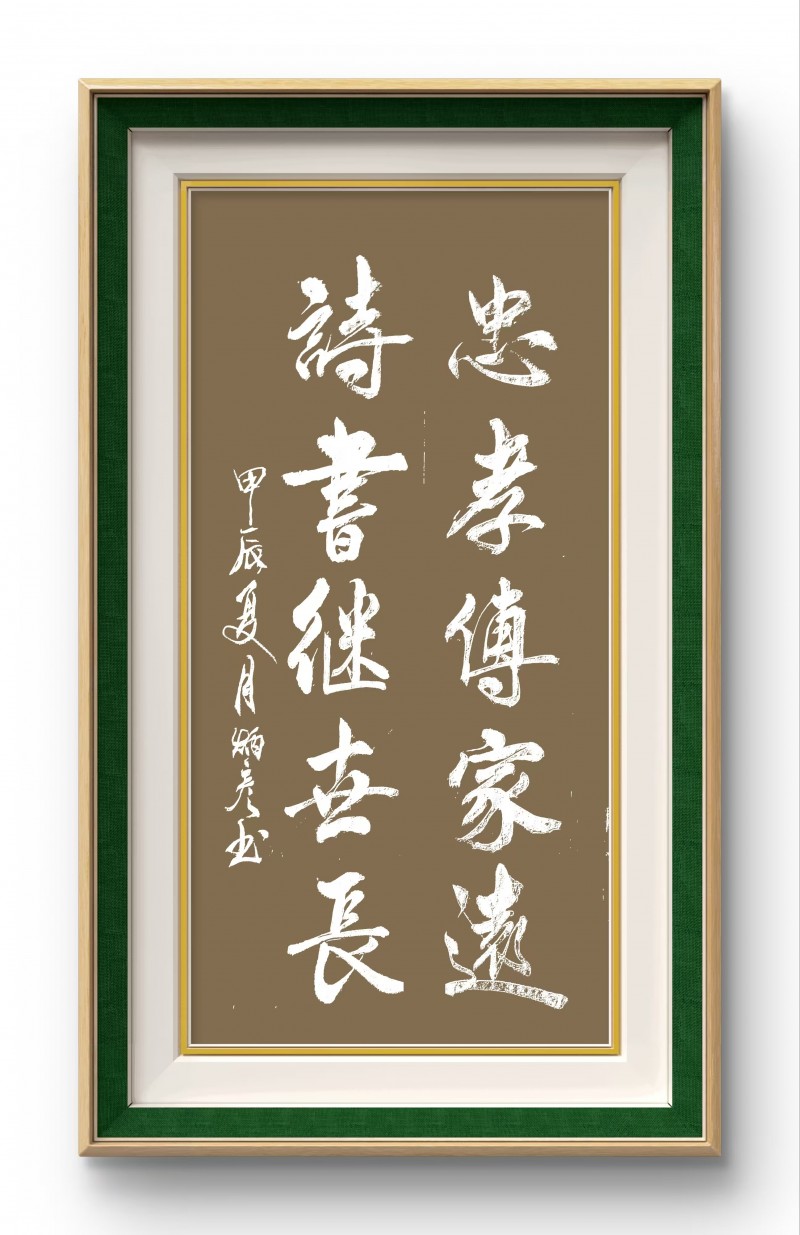 忠孝傳家遠
詩書继世長
甲辰夏月炳彦书